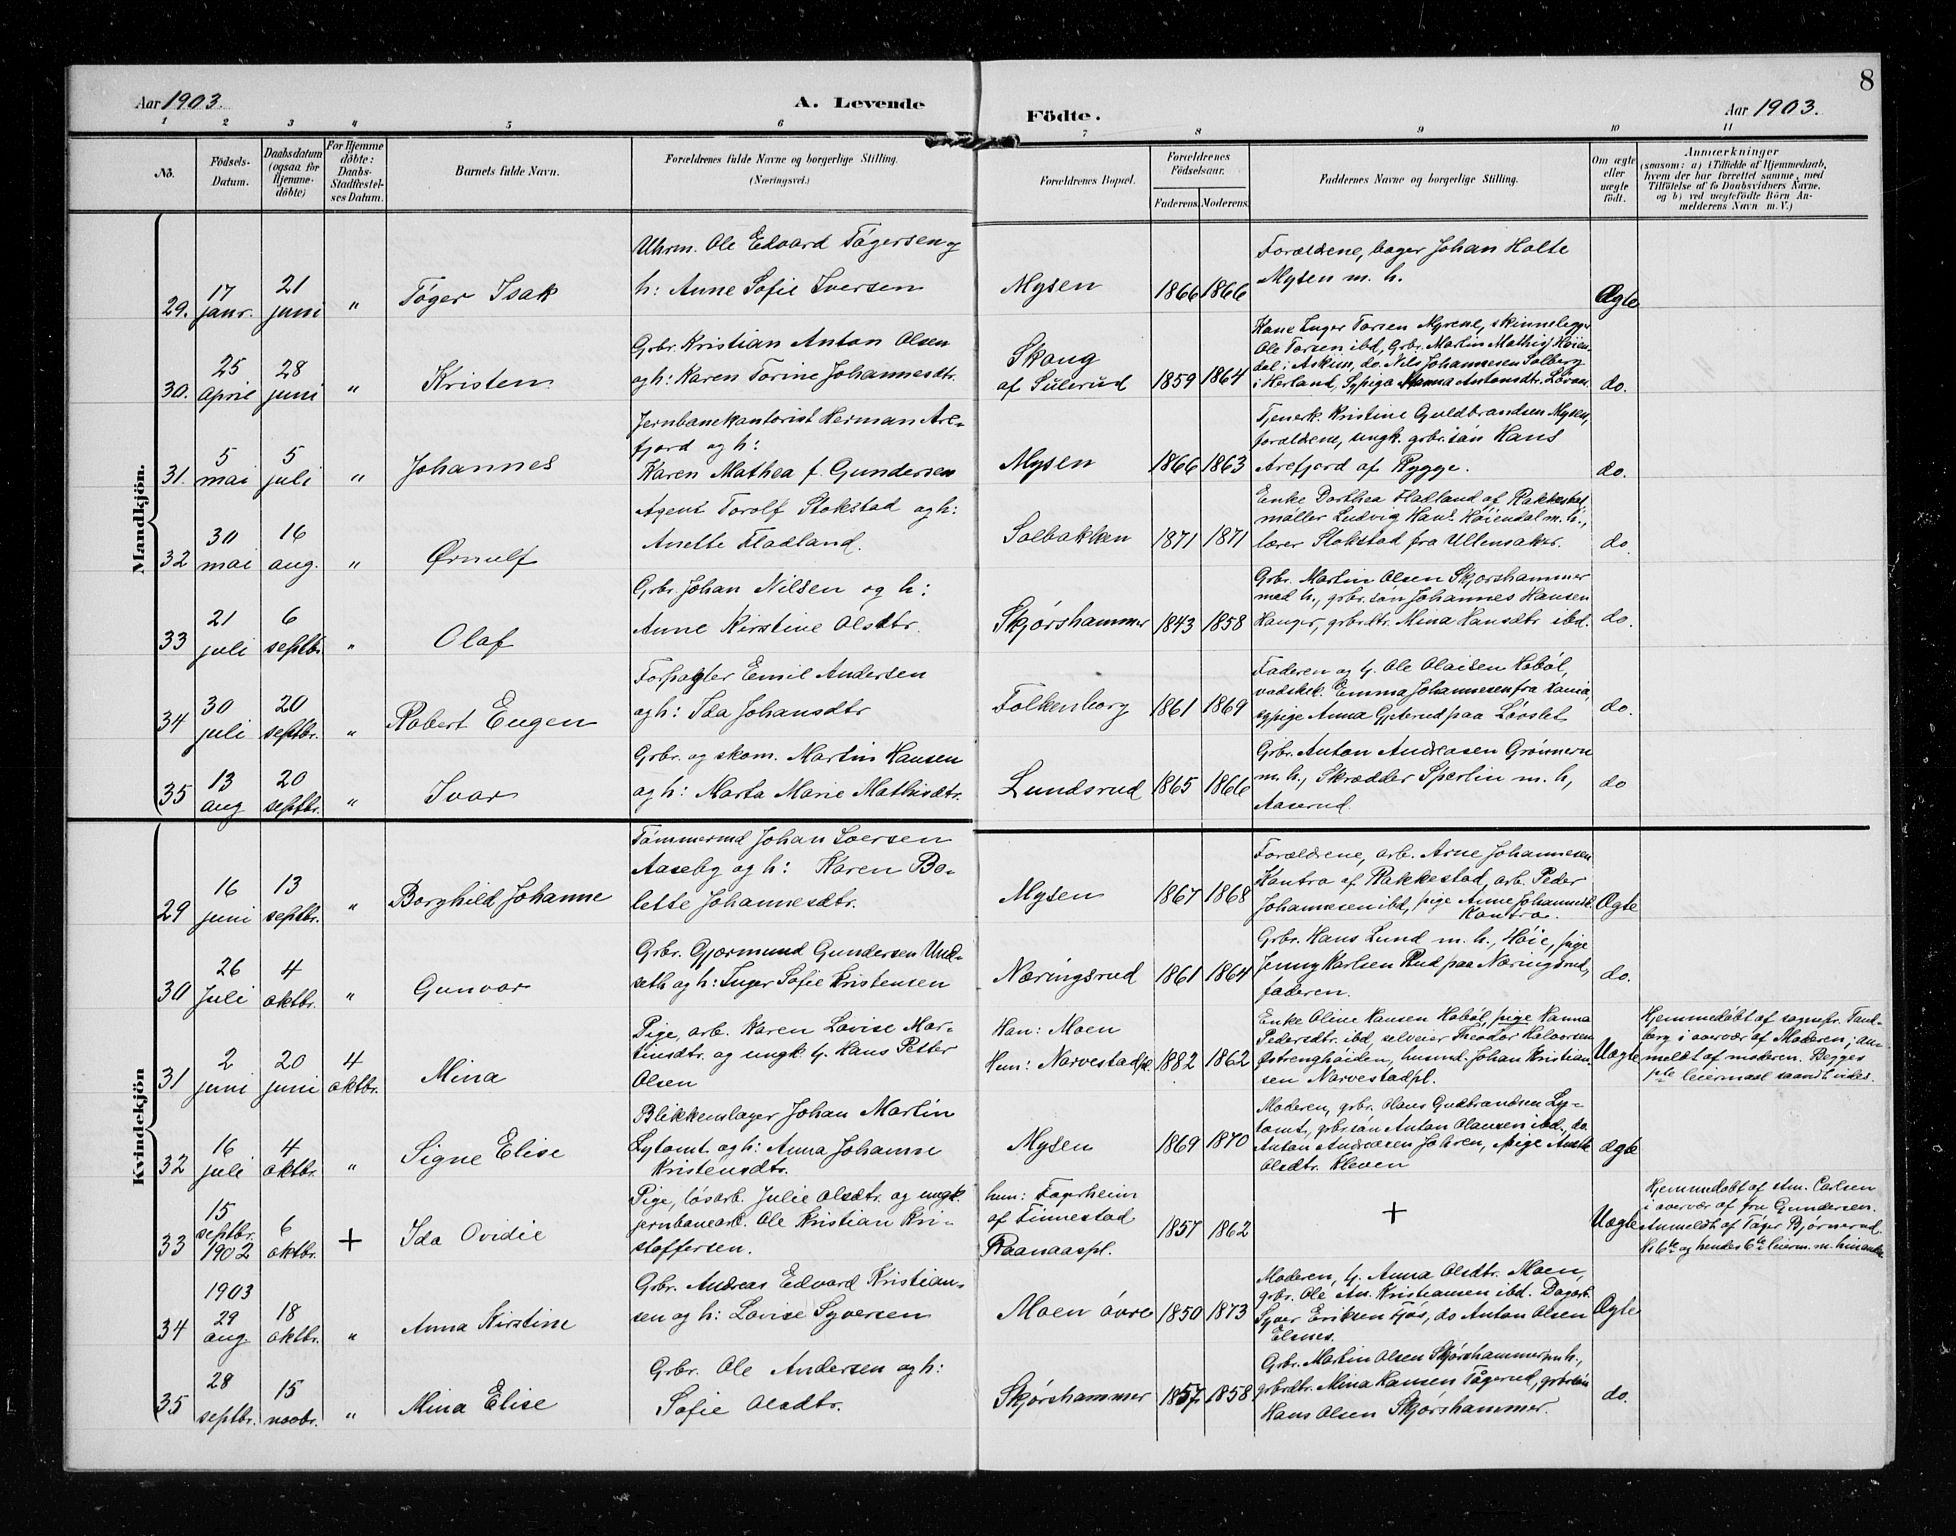 8
Aar 1903.
A. Levende
Födte.
Aar 1903.
1 2 3 4 5 6 7 8 9 10 11
No.
Födsels-
Datum.
Daabsdatum
(ogsaa for
Hjemme-
döbte)
For Hjemme
döbte:
Daabs-
Stadfæstel-
ses Datum.
Barnets fulde Navn.
Forældrenes fulde Navne og borgerlige Stilling.
(Næringsvei.)
Forældrenes Bopæl.
Forældrenes
Födselsaar.
Faderens. Moderens.
Faddernes Navne og borgerlige Stilling.
Om ægte
eller
uægte
födt.
Anmærkninger
(saasom: a) i Tilfælde af Hjemmedaab,
hvem der har forrettet samme, med
Tilföielse af to Daabsvidners Navne,
og b) ved uægtefödte Börn An-
melderens Navn m. V.)
Mandkjön.
29.
17
janr.
21
juni
"
Töger Isak
Uhrm. Ole Edvard Tögersen og
h: Anne Sofie Iversen
Mysen
1866 1866
Forældrene, bager Johan Holte
Mysen m. h.
Ægte
30.
25
april
28
juni
"
Kristen
Grbr. Kristian Anton Olsen
og h: Karen Torine Johannesdtr.
Skaug
af Sulerud
1859 1864
Kone Inger Torsen Myrene,
Ole Torsen ibd, Grbr. Martin Mathis. Höien-
dal i Askim, do. Nils Johannesen Solberg
i Herland, Sypige Hanna Antonsdtr.
do.
31.
5
mai
5
juli
"
Johannes
Jernbanekontorist Herman Are-
fjord og h:
Karen Mathea f. Gundersen
Mysen
1866 1863
Tjenerk. Kristine Guldbrandsen Mysen,
forældrene, ungk. grbr. sön Hans
Arefjord af Rygge.
do.
32
30
mai
16
aug.
"
Ørnulf
Agent Torolf Stokstad og h:
Anette Fladland.
Solbakken
1871 1871
Enke Dorthea Fladland af Rakkestad
möller Ludvig Hans. Höiendal m. h.,
lærer Stokstad fra Ullensaker.
do
33
21
juli
6
septbr.
"
Olaf
Grbr. Johan Nilsen og h:
Anne Kirstine Olsdtr.
Skjörshammer
1843 1858
Grbr. Martin Olsen Skjorshammer
med h., grbr. sön Johannes Hansen
Hanger, grbrdtr. Mina Hansdtr ibd.
do.
34
30
juli
20
septbr.
"
Robert Eugen
Forpagter Emil Andersen
og h: Ida Johansdtr
Folkenborg
1861 1869
Faderen og G. Ole Olaisen Haböl,
Emma Johannesen fra
sypige Anna paa Lövslet
do.
35
13
aug
20
septbr.
"
Ivar
Grbr. og skom. Martin Hansen
og h: Marta Marie Mathisdtr.
Lundsrud
1865 1866
Grbr. Anton Andreasen Grönnern
m. h., Skrædder Sperlin m. h,
Aaserud.
do
Kvindekjön
29
16
juni
13
septbr.
"
Borghild Johanne
Tömmermd Johan Iversen
Aaseby og h: Karen Bo-
lette Johannesdtr.
Mysen
1867 1868
Forældrene, arb. Arne Johannesen
Kantro af Rakkestad, arb. Peder
Johannesen ibd, pige Anne Johannesd.
Kantro.
Ægte
30
26
Juli
4
oktbr.
"
Gunvor
Grbr. Gjormund Gundersen Und-
seth og h: Inger Sofie Kristensen
Næringsrud
1861 1864
Grbr. Hans Lund m. h., Höie, pige
Jenny Karlsen Rud paa Næringsrud,
faderen.
do.
31
2
juni
20
juni
4
oktbr.
Mina
Pige, arb. Karen Lovise Mar-
tinsdtr. og ungk. G. Hans Petter
Olsen
Han: Moen
Hun: Narvestadpl.
1882 1862
Enke Oline Hansen Haböl, pige Hanna
Pedersdtr. ibd, selveier Theodor Halvorsen
Östrenghöiden, husmd. Johan Kristian-
sen Narvestadpl.
Uægte
Hjemmedöbt af sognepr. Tand-
berg i overvær af Moderen; an-
meldt af moderen. Begges
1ste leiermaal saavidt vides.
32
16
juli
4
oktbr.
"
Signe Elise
Blikkenslager Johan Martin
Lytomt og h: Anna Johanne
Kristensdtr.
Mysen
1869 1870
Moderen, grbr. Olaus Gudbrandsen Ly-
tomt, grbr. sön Anton Olausen ibd., do.
Anton Andreasen Jahren, pige Anette
Olsdtr. Kleven
ægte
33
15
septbr.
1902
6
oktbr.
+
Ida Ovidie
Pige, lösarb. Julie Olsdtr. og ungk.
jernbanearb. Ole Kristian Kri-
stoffersen.
hun: Fagerheim
af Finnestad
Raanaaspl.
1857 1862
+
Uægte
Hjemmedöbt af stm. Carlsen
i overvær af fru Gundersen.
Anmeldt af Töger Björnerud.
Hs 6te og hendes 6te leierm. m. hinanden
34
1903
29
aug.
18
oktbr.
"
Anna Kirstine
Grbr. Andreas Edvard Kristian-
sen og h: Lovise Syversen
Moen övre
1850 1873
Moderen, G. Anna Olsdtr. Moen,
grbr. Ole An. Kristiansen ibd. Dagarb.
Syver Eriksen Fjös, do Anton Olsen
Elsnes.
Ægte
35
28
septbr.
15
novbr.
"
Mina Elise
Grbr. Ole Andersen og h:
Sofie Olsdtr.
Skjörshammer
1857 1858
Grbr. Martin Olsen Skjörshammer m h.,
grbrdtr. Mina Hansen Tögerud, grbr sön
Hans Olsen Skjorshammer.
do.